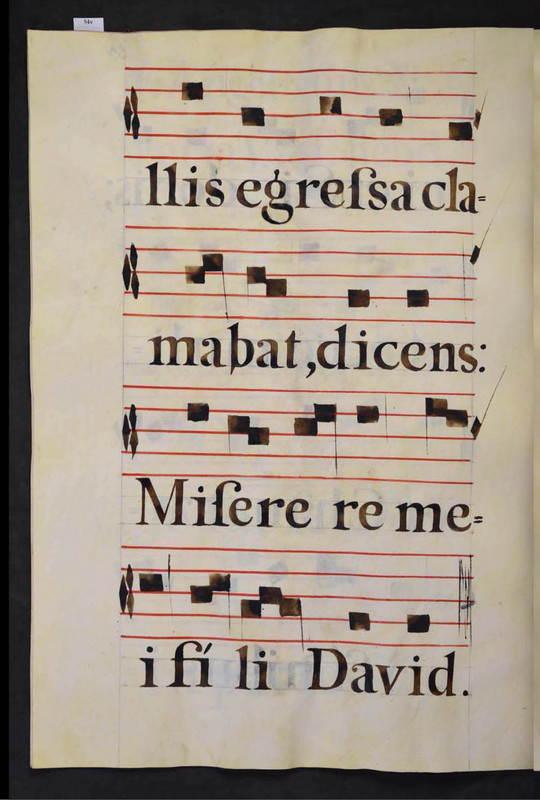 llis egreſsa cla=
mabat, dicens:
Miſere re me=
i fí li David.